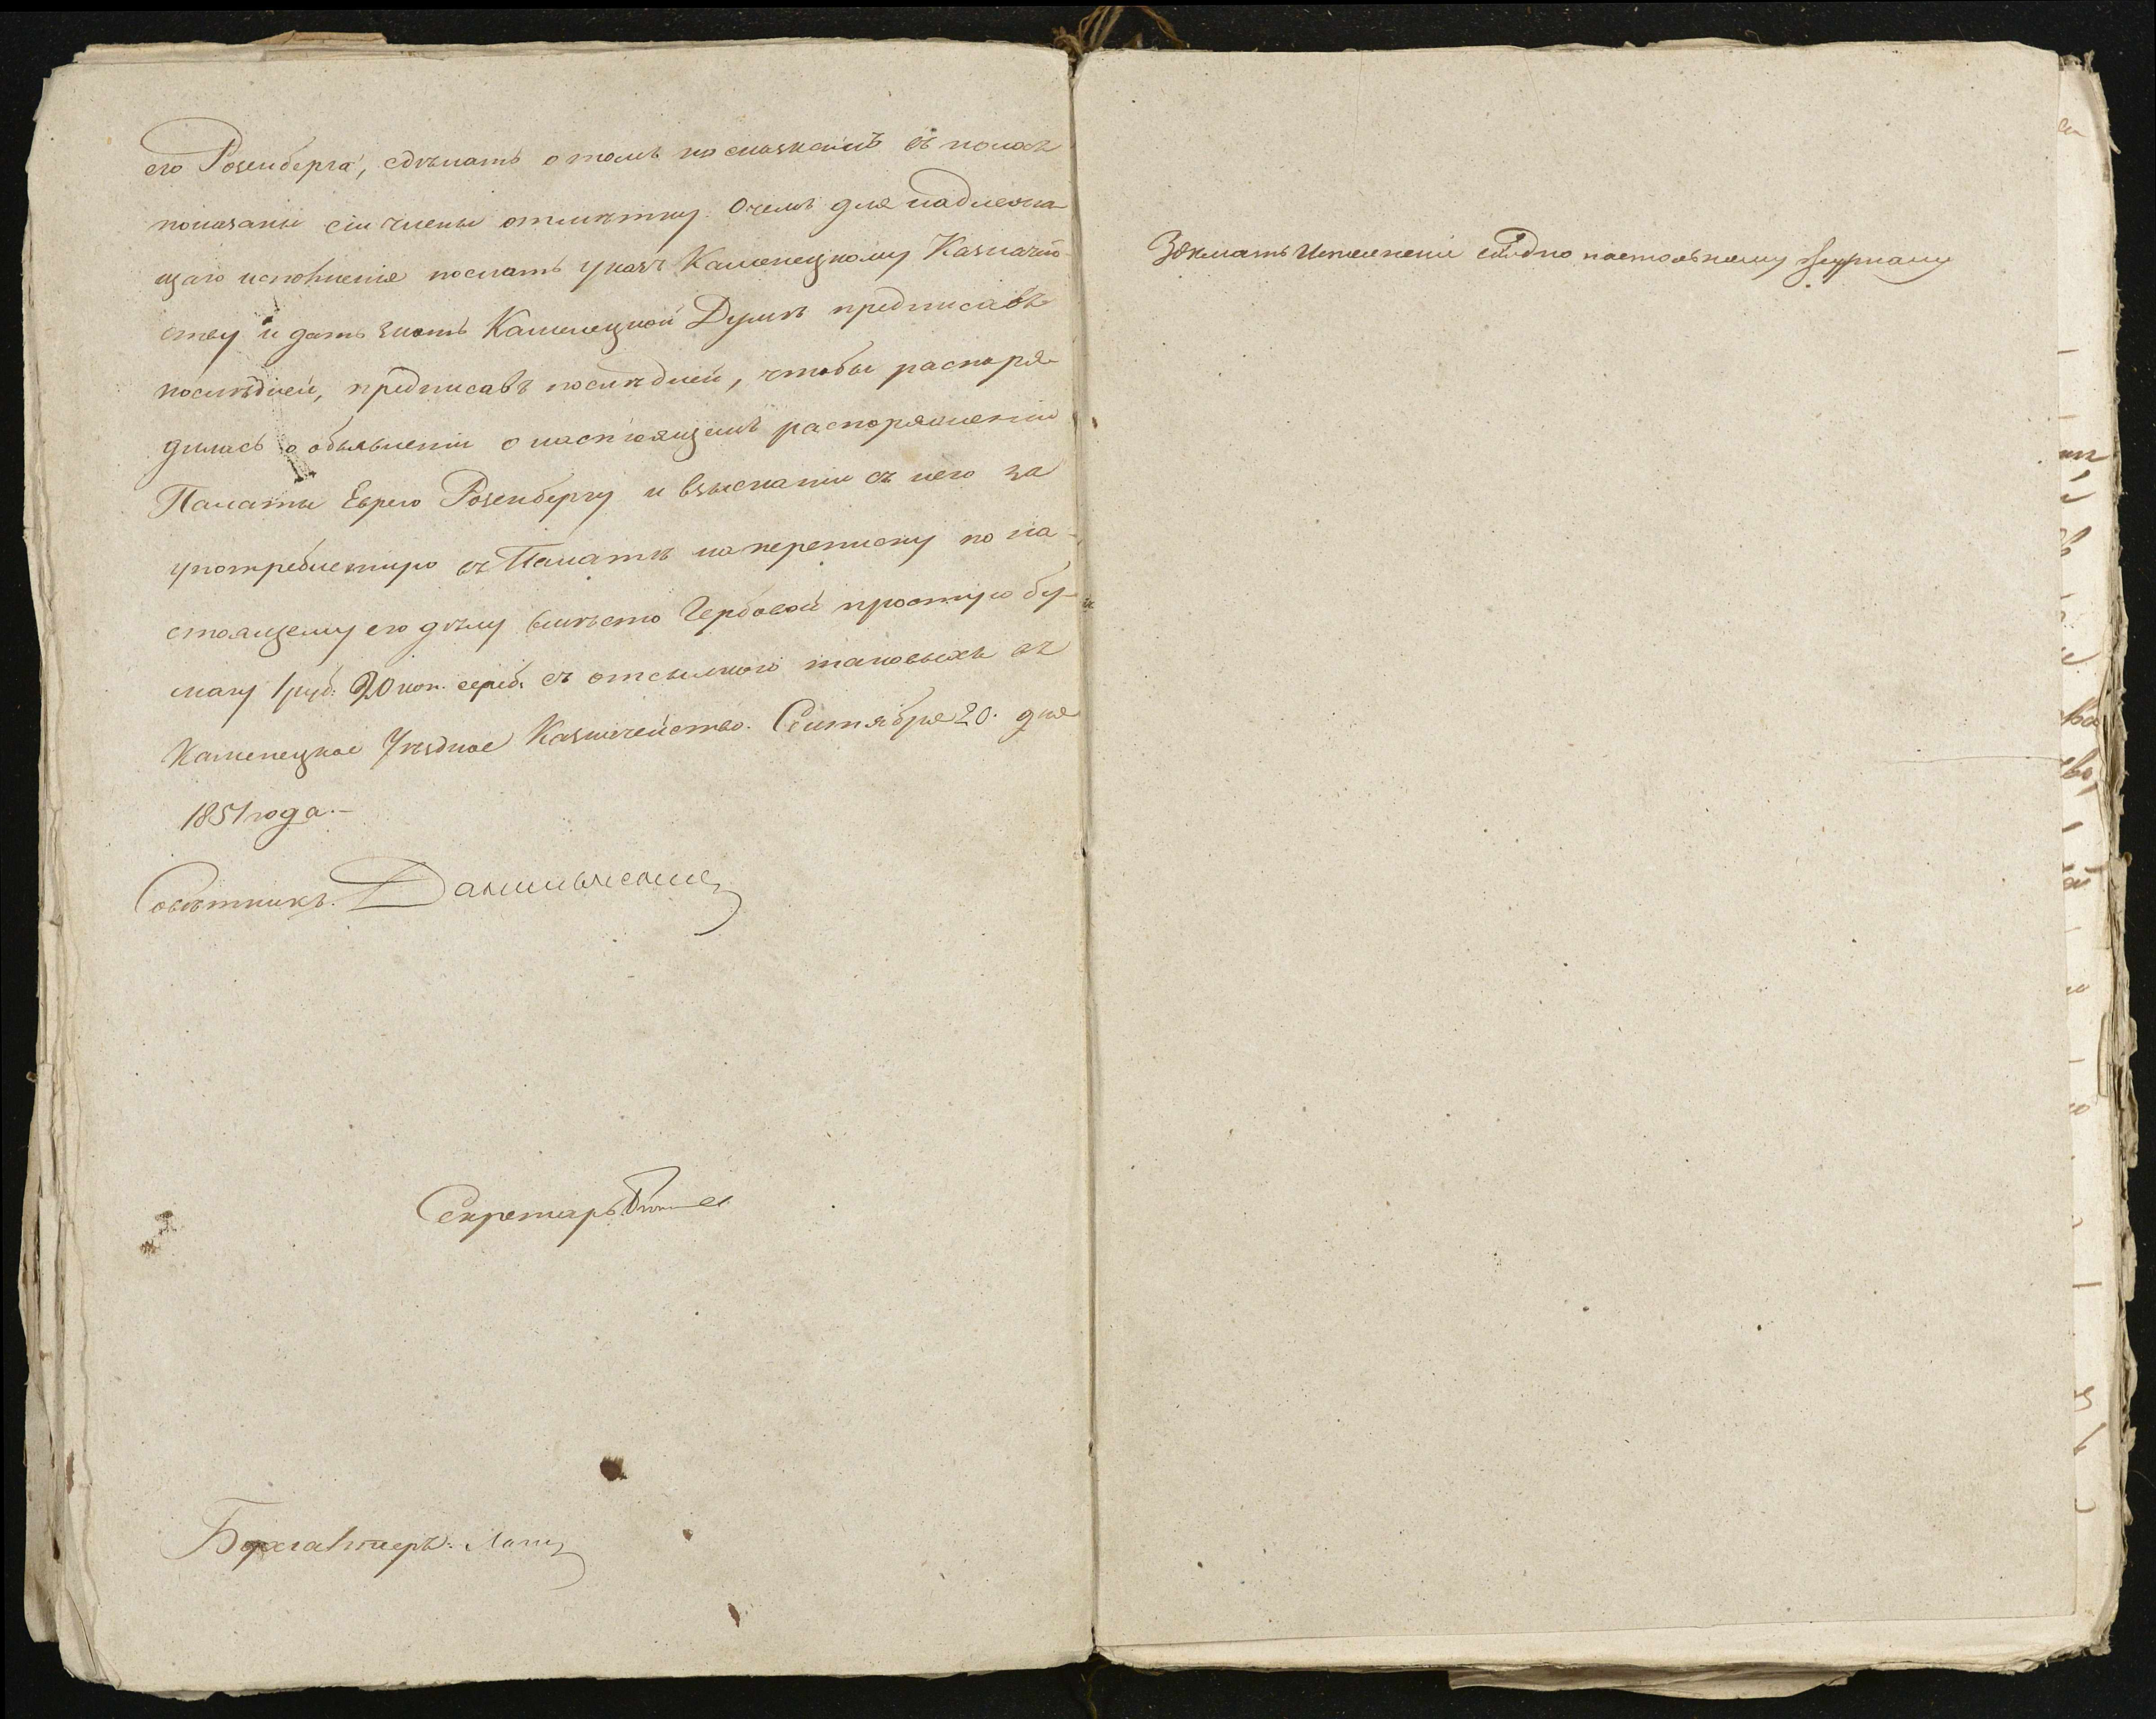 его Розенберга, сдѣлать о томъ по сказкамъ въ коихъ
показаны сіи члены отмѣтку. О чемъ для надлежа-
щаго исполненія послать указъ Каменецкому Казначей-
ству и дать знать Каменецкой Думѣ предписавъ
послѣдней, предписавъ послѣдней, чтобы распоря-
дилась о объявленіи о настоящемъ распоряженіи
Палаты Еврею Розенбергу и взысканіи съ него за
употребленную въ Палатѣ на переписку по на-
стоящему его дѣлу вмѣсто Гербовой простую бу-
магу 1 руб. 20 коп. сереб. съ отсылкою таковыхъ въ
Каменецкое Уѣздное Казначейство. Сентября 20. дня
1851 года.-
Совѣтникъ.
Секретарь
Бухгалтеръ.
настольному журналу